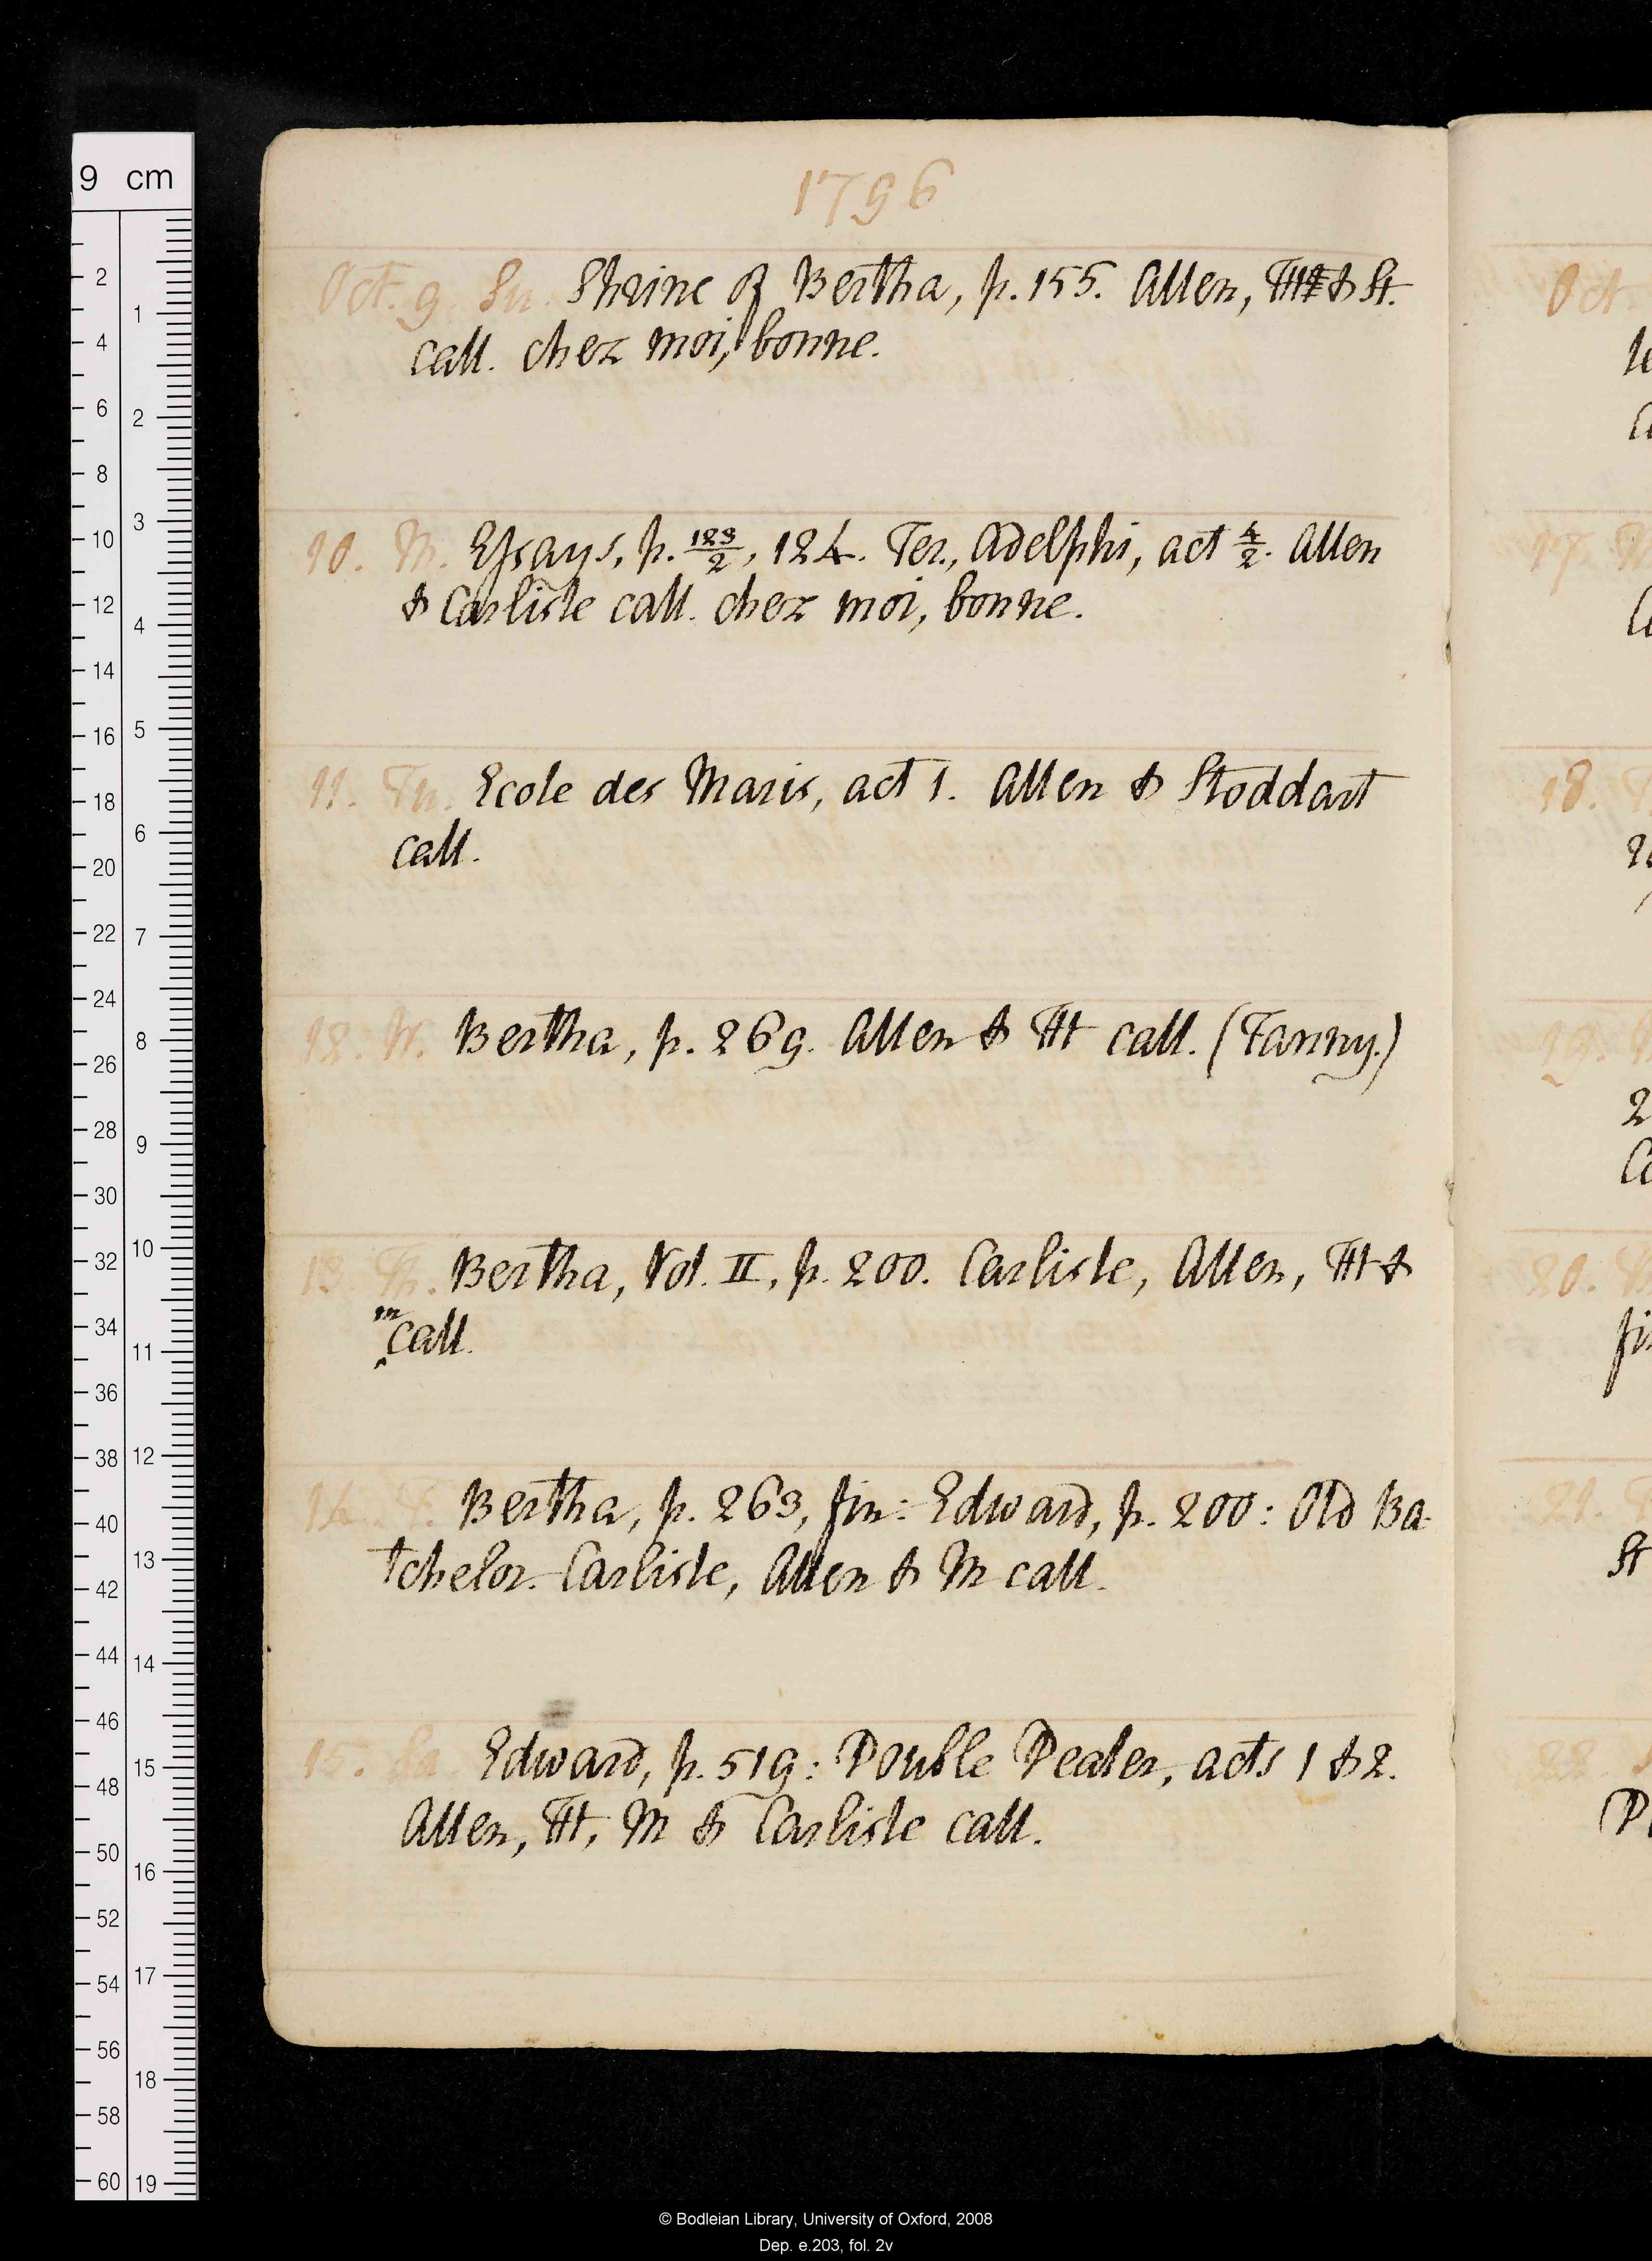 1796
Oct. 9. Su. Shrine of Bertha, p. 155. Allen, & St.
call. chez moi, bonne.
10. M. Essays, p. 123/2, 124. Ter., Adelphi, act 4/2. Allen
& Carlisle call. chez moi, bonne.
11. Tu. Ecole des Maris, act 1. Allen & Stoddart
call.
12. W. Bertha, p. 269. Allen & Ht call. (Fanny.)
13. Th. Bertha, Vol. II, p. 200. Carlisle, Allen, Ht &
m call.
14. F. Bertha, p. 263, fin: Edward, p. 200: Old Ba-
tchelor. Carlisle, Allen & M call.
15. Sa. Edward, p. 519: Double Dealer, acts 1 & 2.
Allen, Ht, M & Carlisle call.
Oct
17. M
18. T
19.
20.
fi
21.
St
22.
9 cm
2 4 6 8 10 12 14 16 18 20 22 24 26 28 30 32 34 36 38 40 42 44 46 48 50 52 54 56 58 60
1 2 3 4 5 6 7 8 9 10 11 12 13 14 15 16 17 18 19
© Bodleian Library, University of Oxford, 2008
Dep. e.203, fol. 2v